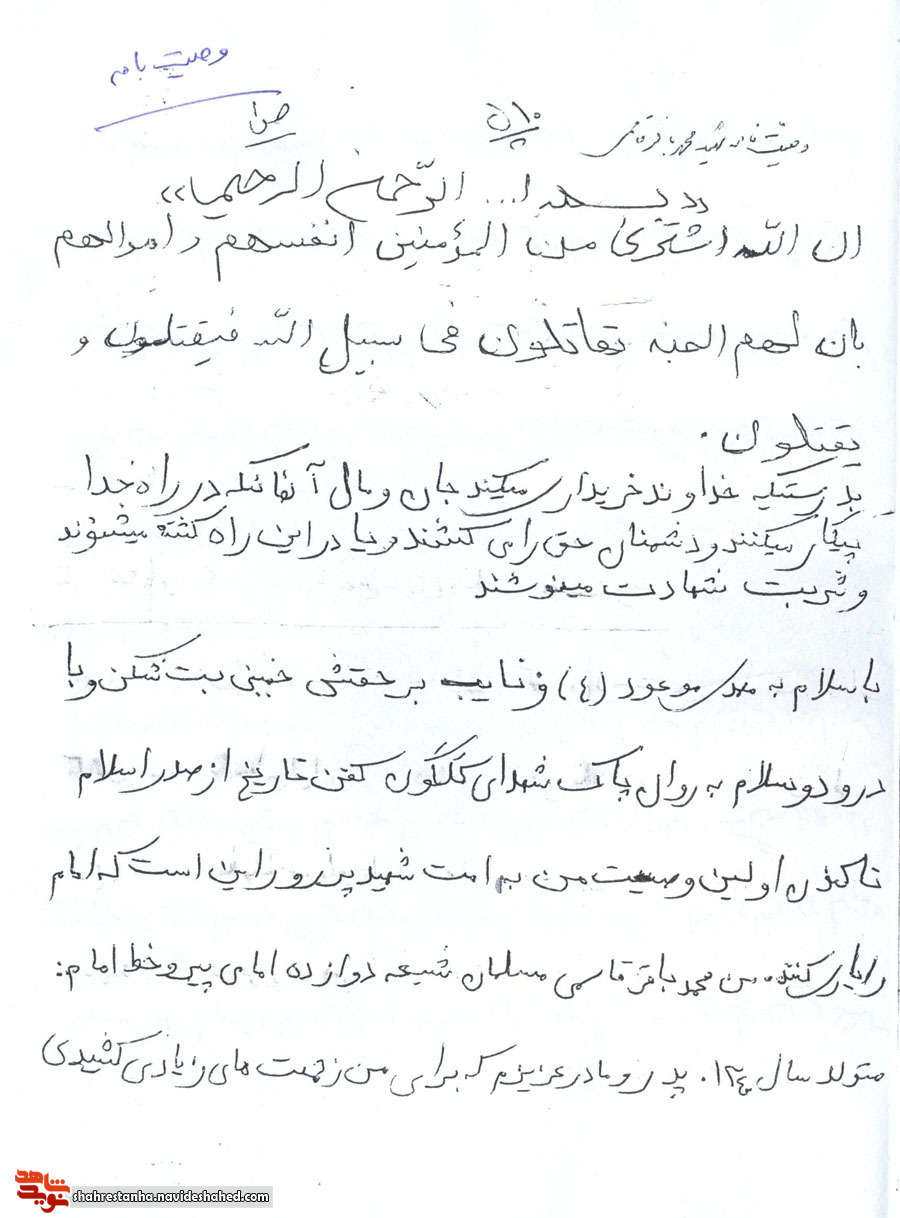 وصیت نامه
ص۱
وصیت نامه شهید محمد باقر قاسمی
«بسم ا... الرّحمن الرحیم»
ان اللّه اشتری من المؤمنین انفسهم و اموالهم
بان لهم الجنه تقاتلون فی سبیل اللّه فیقتلون و
یقتلون.
بدرستیکه خداوند خریداری میکند جان و مال آنهائیکه در راه خدا
پیکار میکنند و دشمنان حق را می کشند و یا در این راه کشته میشوند
و شربت شهادت مینوشند
با سلام به مهدی موعود (ع) و نایب بر حقش خمینی بت شکن و با
درود و سلام به روان پاک شهدای گلگون کفن تاریخ از صدر اسلام
تاکنون اولین وصیت من به امت شهید پرور این است که امام
را یاری کنند. من محمد باقر قاسمی مسلمان شیعه دوازده امامی پیرو خط امام:
متولد سال ۱۳۴۰. پدر و مادر عزیزم که برای من زحمت های زیادی کشیدی
نوید شاهد
shahrestanha.navideshahed.com